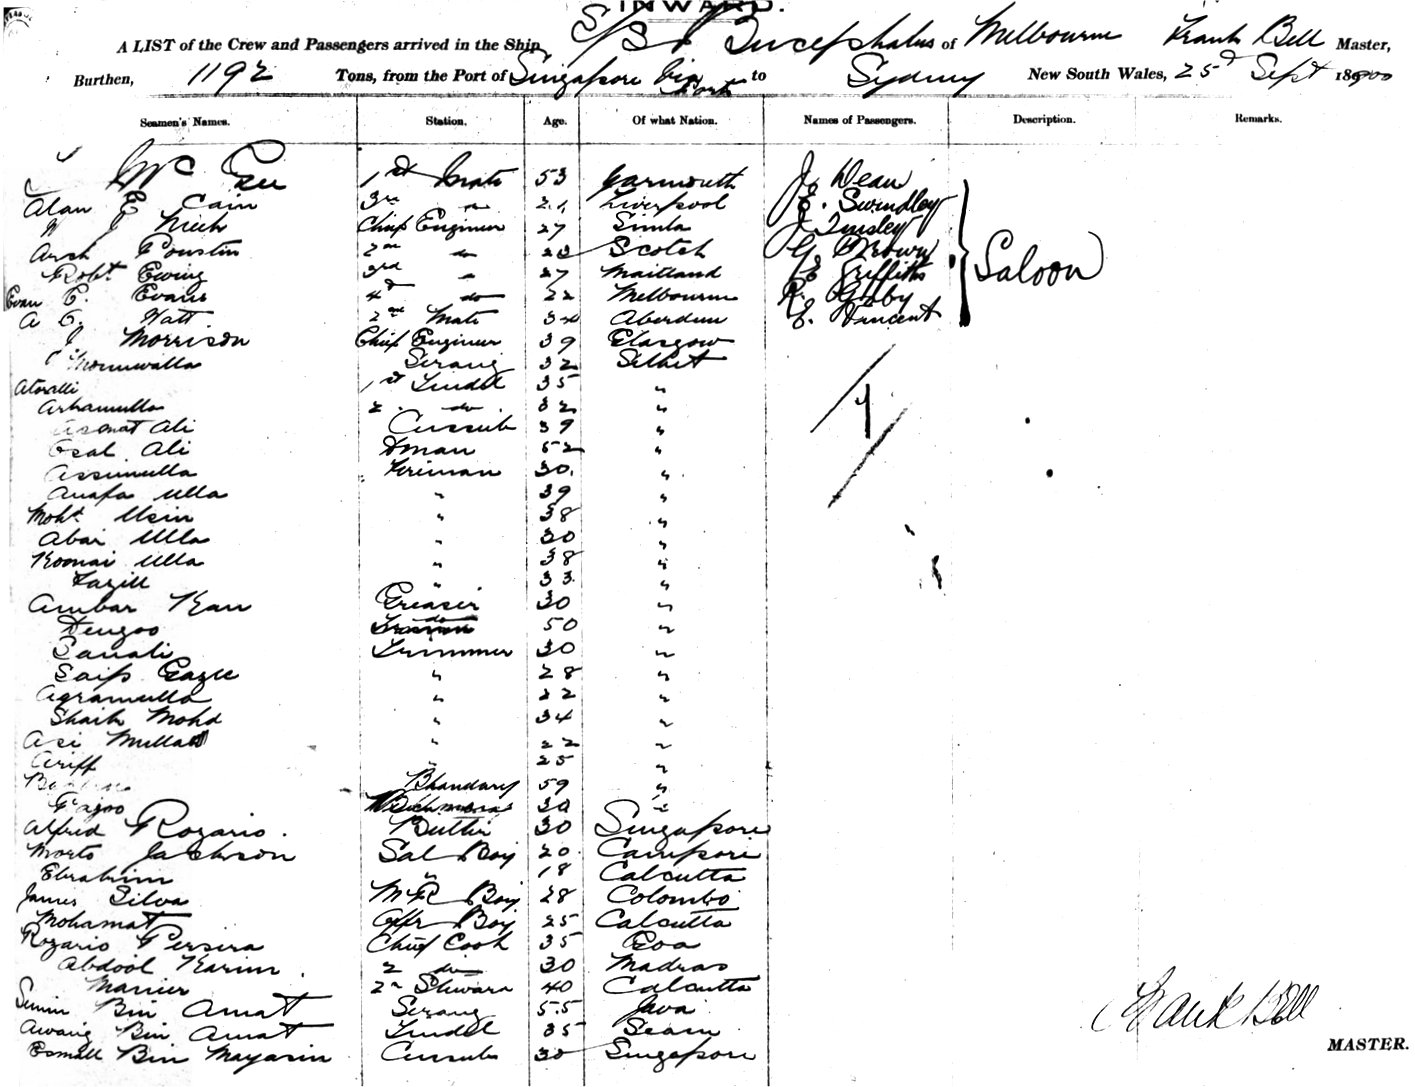 INWARD.
A LIST of the Crew and Passengers arrived in the Ship S/S Bucephalus of Melbourne Frank Bell Master,
Burthen, 1192 Tons, from the Port of Singapore via Ports to Sydney New South Wales, 25d Sept 1900
Seamen's Names. Station. Age. Of what Nation. Names of Passengers. Description. Remarks.
Mc Gee 1st Mate 53 Yarmouth J. Dean
Alan E Cain 3rd do Liverpool E. Swindley
Chief Engineer 27 Simla J Tinsley
Arch 2nd do 23 Scotch G Brown
Robt Ewing 3rd " 27 Maitland E Griffiths Saloon
Evan E. Evans 4th do 22 Melbourne R.
A E. Watt 2nd Mate 34 Aberdeen E. Vincent
J Morrison Chief Engineer 39 Glasgow
Serang 32 Silhet
Atoralli 1st Tindel 35 "
Arhamulla 2. do 32 "
Asmat Ali Cussub 39 "
Ali 52 "
Assimulla Fireman 30. "
Anafa Ulla " 39 "
Moht Usin " 38 "
Abai Ulla " 30 "
Koomai Ulla " 38 "
Fazill " 33 "
Ambar Kan Greaser 30 "
Dengoo do 50 "
Sanali Trimmer 30 "
Saif Gazee " 28 "
Agramulla " 22 "
Shaik Mohd " 34 "
Asi Mullah " 22 "
Ariff " 25 "
Bhandary 59 "
Fazoo 30 "
Alfred Rozario. Butler 30 Singapore
Morto Jackson Sal Boy 20 Cawnpore
Ebrahim " 18 Calcutta
James Silva M R Boy 28 Colombo
Mohamat Offr Boy 25 Calcutta
Rozario Persira Chief Cook 35 Goa
Abdool Karim. 2 do 30 Madras
Manier 2n Steward 40 Calcutta
Simin Bin Amat Serang 55 Java
Awang Bin Amat Tindel 35 Seam
Esmall Bin Mayassin Cussub 30 Singapore
7
Frank Bell
MASTER.